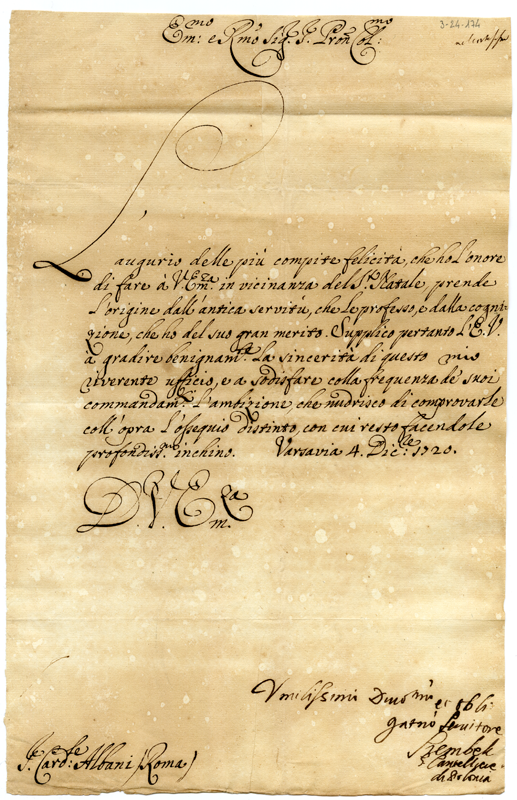 3-24-174
Em:mo e Rmo Sig. P. Pron Col:mo
L'augurio delle più compite felicità, che ho l'onore
di fare à V.Em.za in vicinanza del S.to Natale prende
l'origine dall'antica servitù, che le professo, e dalla cogni=
zione, che ho del suo gran merito. Supplico pertanto l'E.V.
à gradire benignam.te la sincerità di questo mio
riverente ufficio, e a sodisfare colla frequenza de suoi
commandam.ti l'ambizione, che nudrisco di comprovarle
coll'opra l'ossequio distinto, con cui resto facendole
profondiss.mo inchino. Varsavia 4. Dic.bre 1720.
D. V. Em.za
Umilissimo Divo.mo et obli
gatmo Servitore
Szembek
Cancelliere
di Polonia
Sig. Card: Albani (Roma)